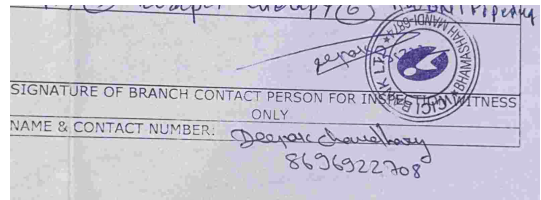 deepak
ICICI BANK LTD * BHAMASHAH MANDI-6874 *
SIGNATURE OF BRANCH CONTACT PERSON FOR INSPECTION WITNESS
ONLY
NAME & CONTACT NUMBER: Deepak chawdhary
8696922708